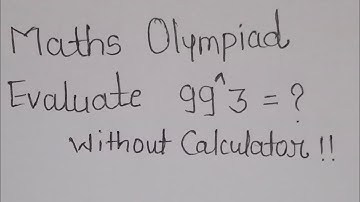 Maths Olympiad
Evaluate 99^3 = ?
Without Calculator !!